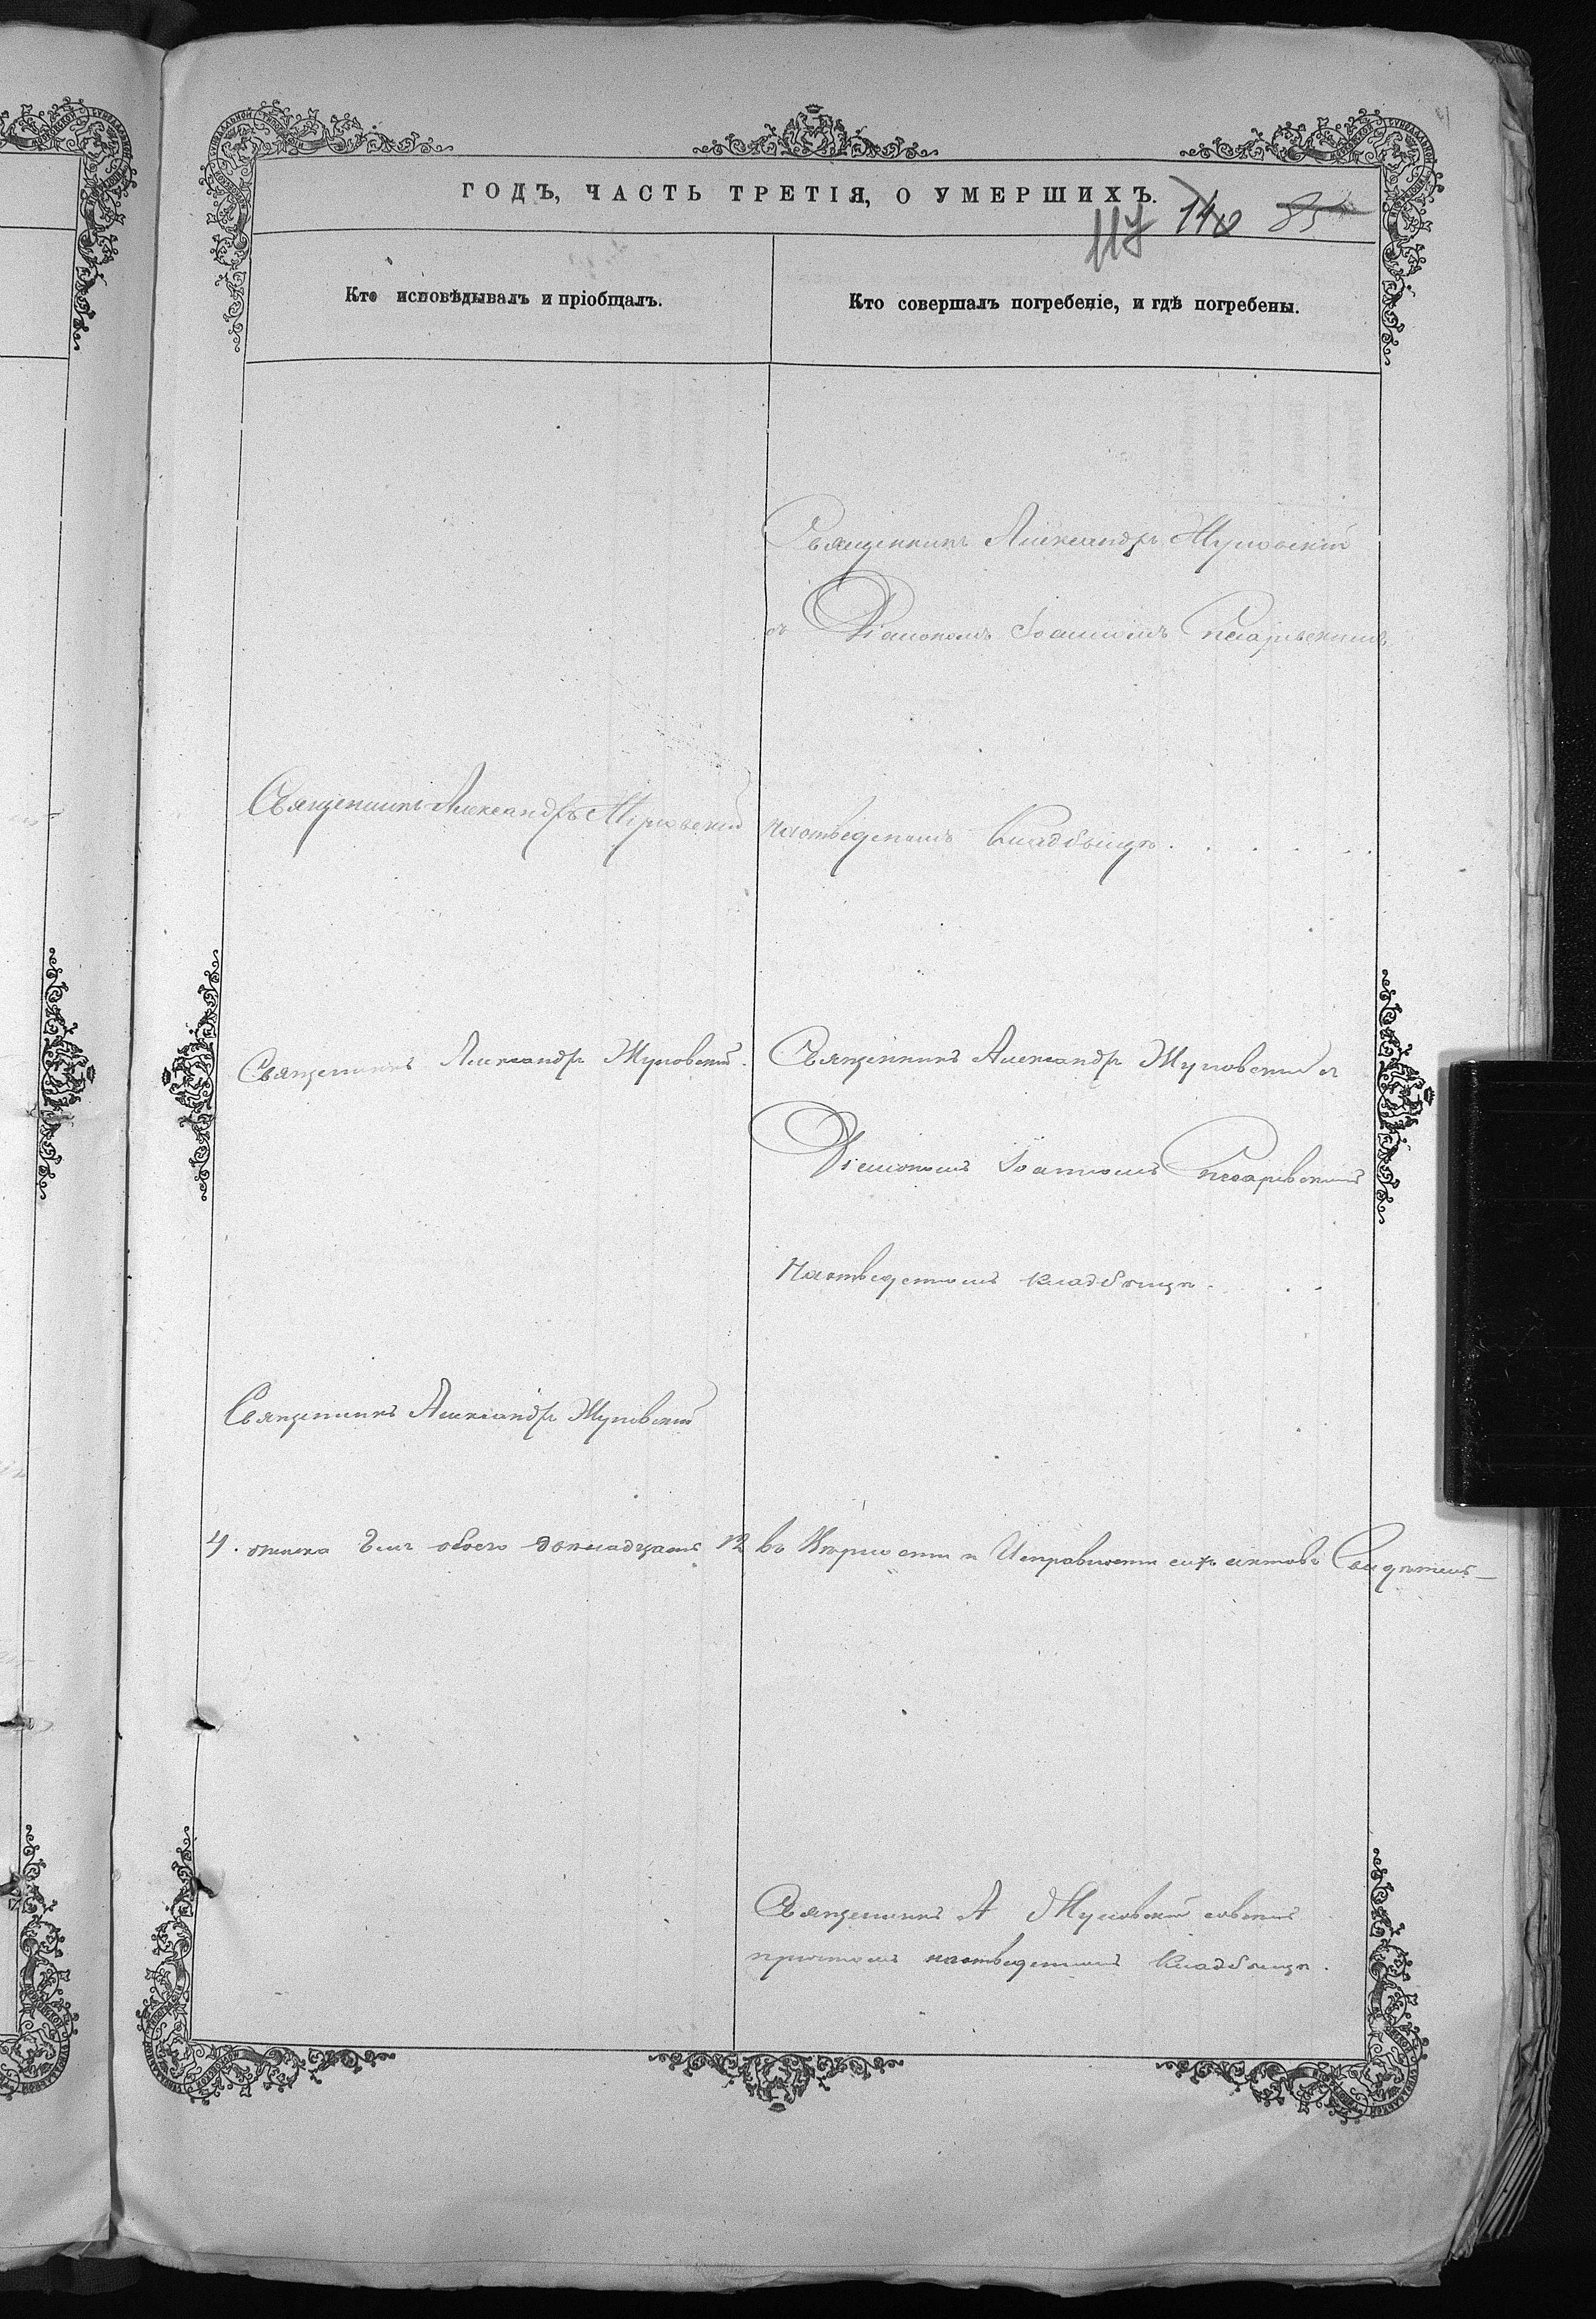 ГОДЪ, ЧАСТЬ ТРЕТІЯ, О УМЕРШИХЪ.
117 140 85
Кто исповѣдывалъ и пріобщалъ.
Кто совершалъ погребеніе, и гдѣ погребены.
Священникъ Александръ Жуковскій
съ Діакономъ Іоанномъ
Священникъ Александръ Жуковскій
наотведеномъ кладбищѣ
Священникъ Александръ Жуковскій.
Священникъ Александръ Жуковскій съ
Діакономъ Іоанномъ
Наотведеномъ кладбищѣ
Священникъ Александръ Жуковскій
4. женска 8 ми обоего 12
въ Вѣрности и Исправности сихъ актовъ Свидѣтель-
Священникъ А Жуковскій совсемъ
причтомъ наотведенномъ кладбищѣ.